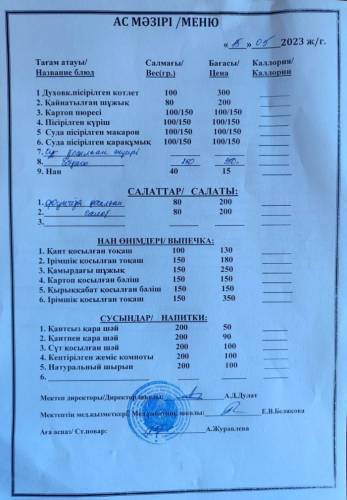 АС МӘЗІРІ /МЕНЮ
« 15 » 05 2023 ж/г.
Тағам атауы/ Салмағы/ Бағасы/ Каллории/
Название блюд Вес(гр.) Цена Каллории
1 Духовк.пісірілген котлет 100 300
2. Қайнатылған шұжық 80 200
3. Картоп пюресі 100/150 100/150
4. Пісірілген күріш 100/150 100/150
5 Суда пісірілген макарон 100/150 100/150
6. Суда пісірілген қарақұмық 100/150 100/150
7.
8.
9. Нан 40 15
САЛАТТАР/ САЛАТЫ:
1. 80 200
2. салат 80 200
3.
НАН ӨНІМДЕРІ/ ВЫПЕЧКА:
1. Қант қосылған тоқаш 100 130
2. Ірімшік қосылған тоқаш 150 180
3. Қамырдағы шұжық 150 250
4. Картоп қосылған бәліш 150 150
5. Қырыққабат қосылған бәліш 150 150
6. Ірімшік қосылған тоқаш 150 350
СУСЫНДАР/ НАПИТКИ:
1. Қантсыз қара шай 200 50
2. Қантпен қара шай 200 90
3. Сүт қосылған шай 200 100
4. Кептірілген жеміс компоты 200 100
5. Натуральный шырын 200 100
6.
Мектеп директоры/Директор школы: А.Л.Дулат
Мектептің мед.қызметкері/ Мед.работник школы: Е.В.Белякова
Аға аспаз/ Ст.повар: А.Журавлева